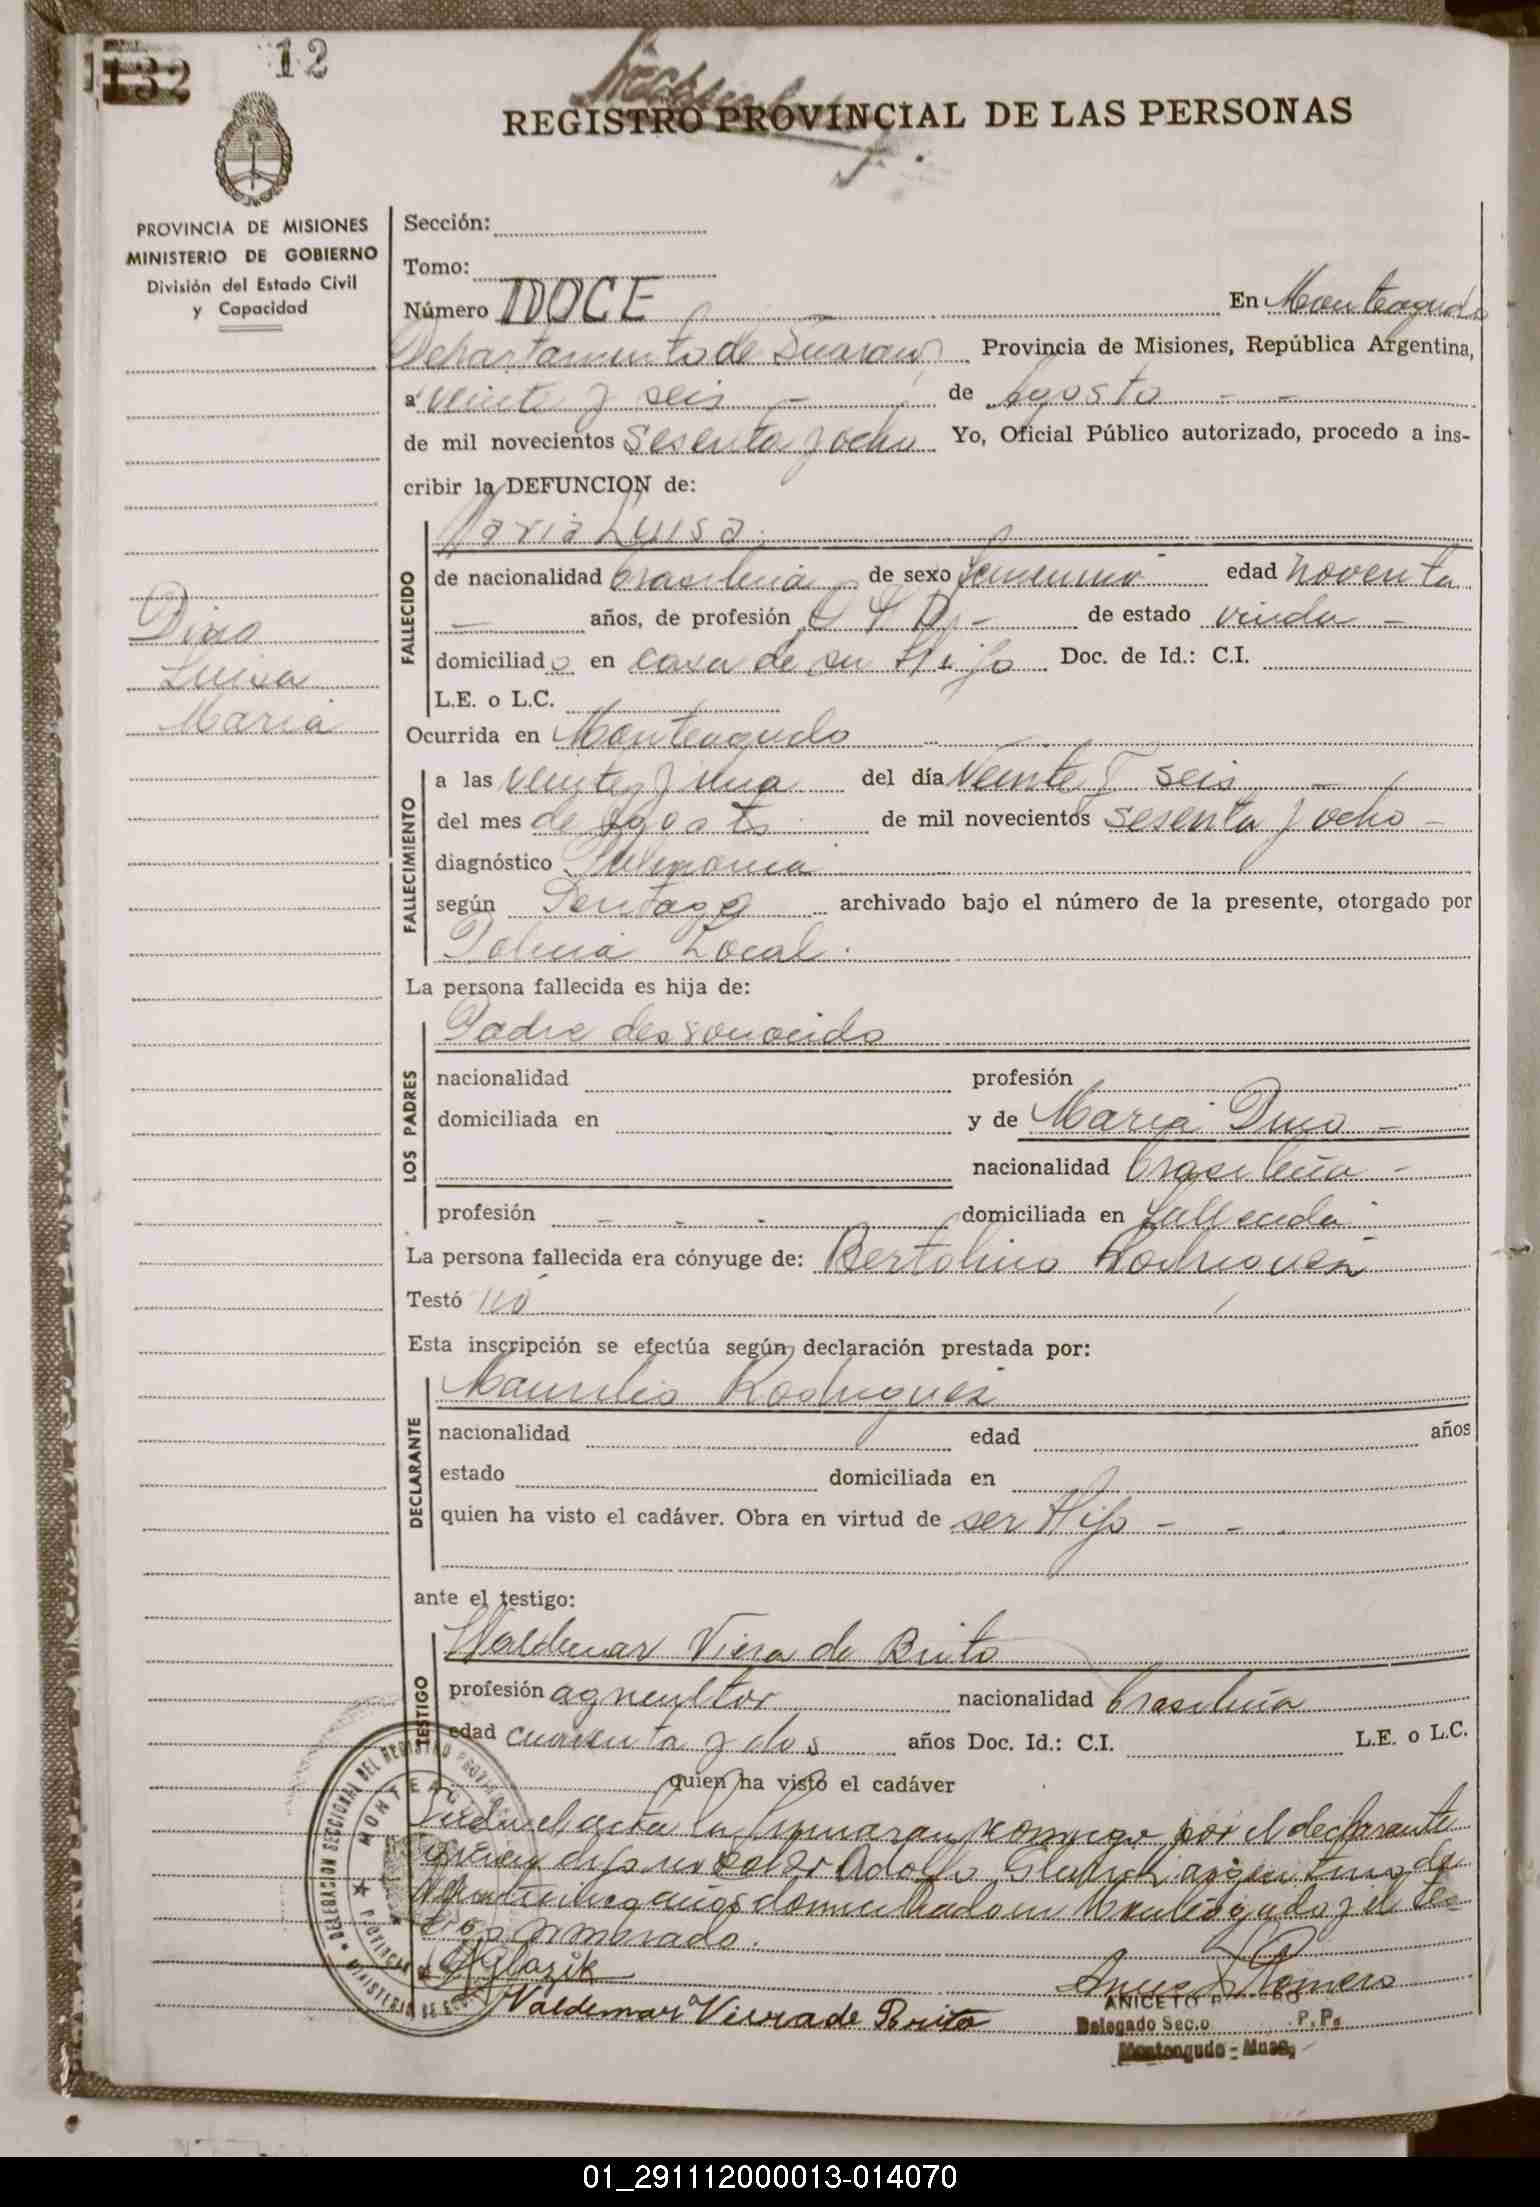 132
12
REGISTRO PROVINCIAL DE LAS PERSONAS
PROVINCIA DE MISIONES
MINISTERIO DE GOBIERNO
División del Estado Civil
y Capacidad
Sección:
Tomo:
Número DOCE En Monteagudo
Departamento de Guaraní Provincia de Misiones, República Argentina,
a veinte y seis de Agosto
de mil novecientos sesenta y ocho Yo, Oficial Público autorizado, procedo a ins-
cribir la DEFUNCION de:
Maria Luisa
FALLECIDO
de nacionalidad brasileña de sexo femenino edad noventa
años, de profesión Q H D de estado viuda
domiciliado en casa de su Hijo Doc. de Id.: C.I.
L.E. o L.C.
Luisa
Maria
Ocurrida en Monteagudo
FALLECIMIENTO
a las veinte y una del día Veinte y seis
del mes de Agosto de mil novecientos sesenta y ocho
diagnóstico Pulmonia
según archivado bajo el número de la presente, otorgado por
Policia Local.
La persona fallecida es hija de:
LOS PADRES
Padre desconocido
nacionalidad profesión
domiciliada en y de Maria
nacionalidad brasileña
profesión domiciliada en fallecida
La persona fallecida era cónyuge de: Bertolino Rodriguez
Testó no
Esta inscripción se efectúa según declaración prestada por:
DECLARANTE
Maurilio Rodriguez
nacionalidad edad años
estado domiciliada en
quien ha visto el cadáver. Obra en virtud de ser Hijo
ante el testigo:
TESTIGO
Waldemar Viera de Brito
profesión agricultor nacionalidad brasileña
edad cuarenta y dos años Doc. Id.: C.I. L.E. o L.C.
quien ha visto el cadáver
Leida el acta la firmaran conmigo por el declarante
quien dijo no saber Adolfo argentino de
años domiciliado en Monteagudo y el tes-
tigo nombrado.
DELEGACION SECCIONAL DEL REGISTRO PROVINCIAL
Waldemar Vieira de Brito
ANICETO ROMERO
Delegado Sec. P.P.
Monteagudo - Mnes.
01_291112000013-014070